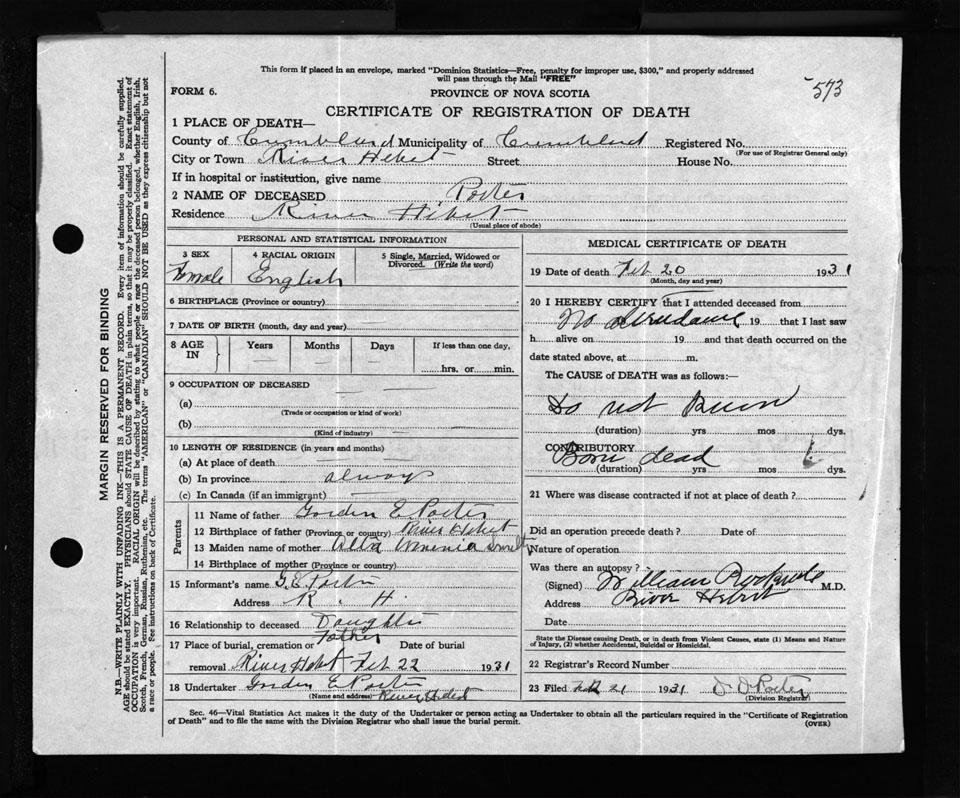 573
This form if placed in an envelope, marked "Dominion Statistics—Free, penalty for improper use, $300," and properly addressed
will pass through the Mail "FREE"
FORM 6.
PROVINCE OF NOVA SCOTIA
CERTIFICATE OF REGISTRATION OF DEATH
1 PLACE OF DEATH—
County of Cumberland Municipality of Cumberland Registered No.
(For use of Registrar General only)
City or Town River Hebert Street House No.
If in hospital or institution, give name
2 NAME OF DECEASED Porter
Residence River Hebert
(Usual place of abode)
PERSONAL AND STATISTICAL INFORMATION
3 SEX 4 RACIAL ORIGIN 5 Single, Married, Widowed or
Divorced. (Write the word)
Female English
6 BIRTHPLACE (Province or country)
7 DATE OF BIRTH (month, day and year)
8 AGE IN Years Months Days If less than one day,
hrs. or min.
9 OCCUPATION OF DECEASED
(a)
(Trade or occupation or kind of work)
(b)
(Kind of industry)
10 LENGTH OF RESIDENCE (in years and months)
(a) At place of death
(b) In province always
(c) In Canada (if an immigrant)
Parents
11 Name of father Gorden E Porter
12 Birthplace of father (Province or country) River Hebert
13 Maiden name of mother
14 Birthplace of mother (Province or country)
15 Informant's name G. E. Porter
Address R. H.
16 Relationship to deceased Daughter
Father
17 Place of burial, cremation or Date of burial
removal River Hebert Feb 22 1931
18 Undertaker Gorden E Porter
(Name and address) River Hebert
MEDICAL CERTIFICATE OF DEATH
19 Date of death Feb 20 1931
(Month, day and year)
20 I HEREBY CERTIFY that I attended deceased from
No attendance 19 that I last saw
h alive on 19 and that death occurred on the
date stated above, at m.
The CAUSE of DEATH was as follows:—
Do not Know
(duration) yrs mos dys.
CONTRIBUTORY
Born dead
(duration) yrs mos dys.
21 Where was disease contracted if not at place of death?
Did an operation precede death? Date of
Nature of operation
Was there an autopsy?
(Signed) William Rockwell M.D.
Address River Hebert
Date
State the Disease causing Death, or in death from Violent Causes, state (1) Means and Nature
of Injury, (2) whether Accidental, Suicidal or Homicidal.
22 Registrar's Record Number
23 Filed Feb 21 1931 Porter
(Division Registrar)
Sec. 46—Vital Statistics Act makes it the duty of the Undertaker or person acting as Undertaker to obtain all the particulars required in the "Certificate of Registration
of Death" and to file the same with the Division Registrar who shall issue the burial permit.
(OVER)
MARGIN RESERVED FOR BINDING
N.B.—WRITE PLAINLY WITH UNFADING INK—THIS IS A PERMANENT RECORD. Every item of information should be carefully supplied.
AGE should be stated EXACTLY. PHYSICIANS should STATE CAUSE OF DEATH in plain terms, so that it may be properly classified. Exact statement of
OCCUPATION is very important. RACIAL ORIGIN will be described by stating to what people or race the deceased person belonged, whether English, Irish,
Scotch, French, German, Russian, Ruthenian, etc. The terms "AMERICAN" or "CANADIAN" SHOULD NOT BE USED as they express citizenship but not
a race or people. See instructions on back of Certificate.